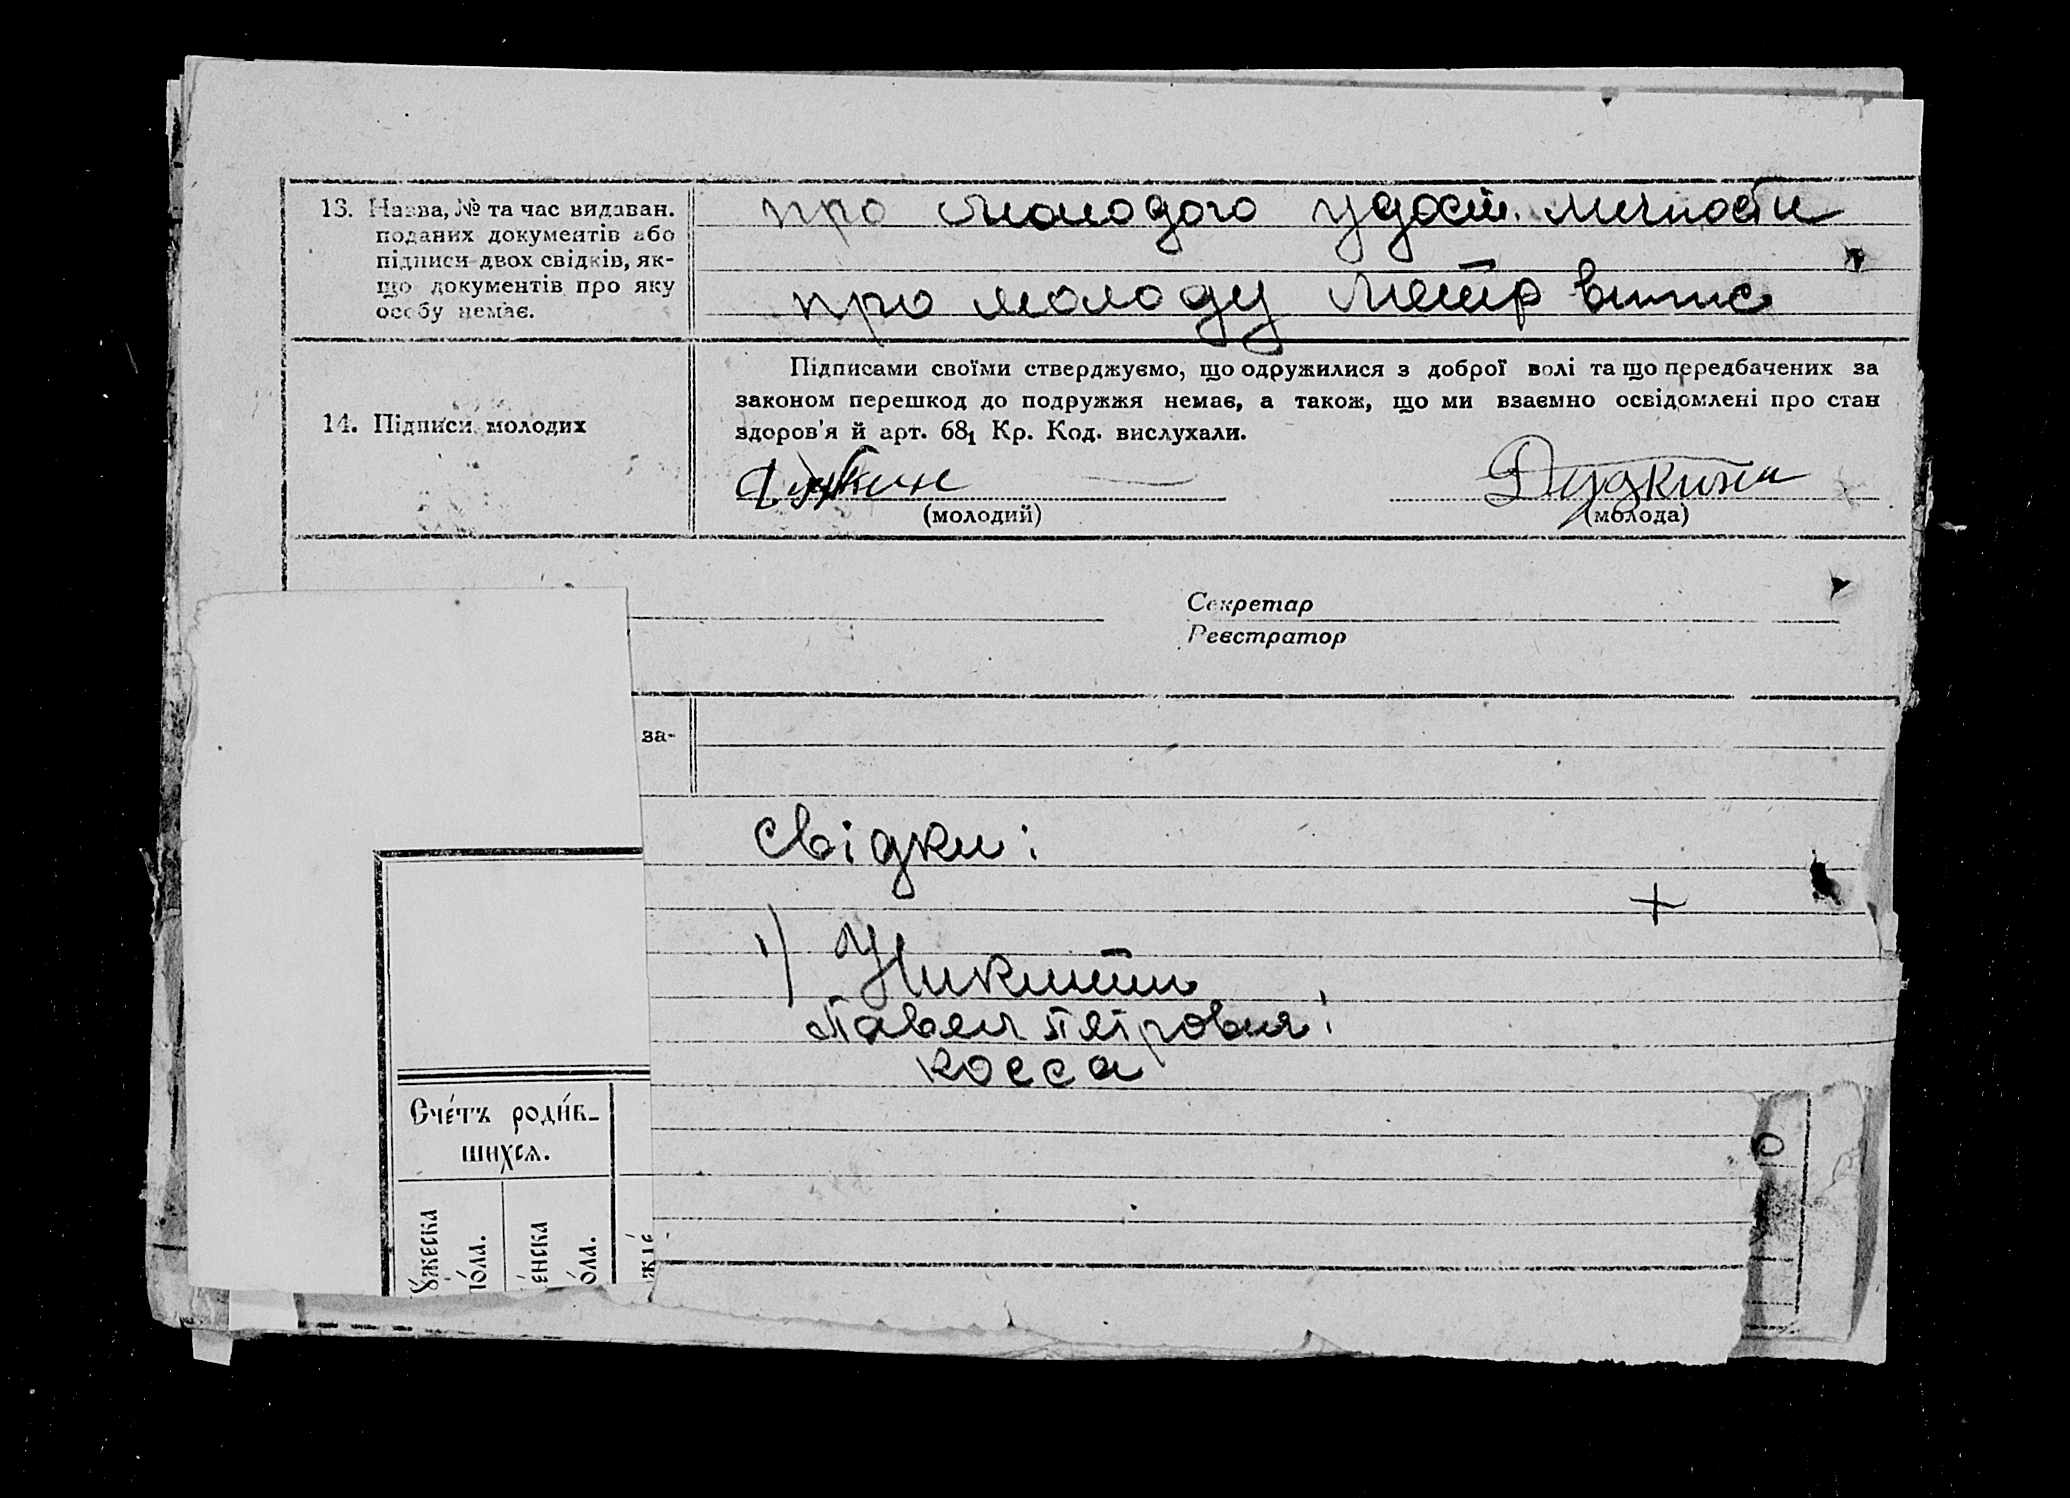 13. Назва, № та час видаван.
поданих документів або
підписи двох свідків, як-
що документів про яку
особу немає.
про молодого удост. личности
про молоду метр выпис
14. Підписи молодих
Підписами своїми стверджуємо, що одружилися з доброї волі та що передбачених за
законом перешкод до подружжя немає, а також, що ми взаємно освідомлені про стан
здоров'я й арт. 68₁ Кр. Код. вислухали.
Дудкина
(молодий)
(молода)
Секретар
Реєстратор
за-
свідки:
+
1) Никитин
Павел Петрович
косса
Счéтъ роди́в-
шихся.
ꙋ́жеска
по́ла.
е́нска
о́ла.